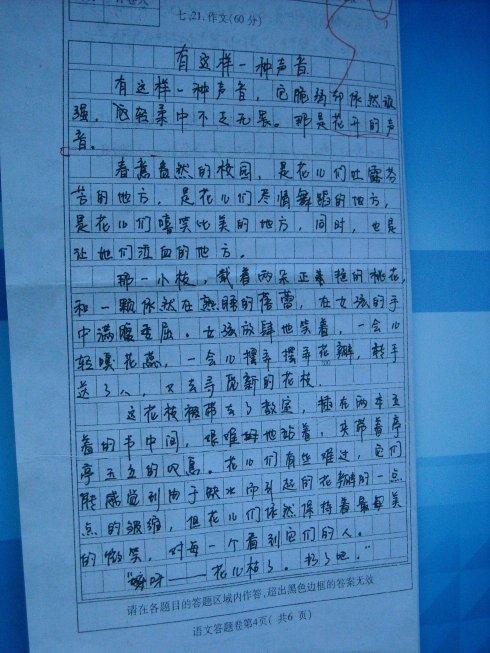 七、21.作文(60分)
有这样一种声音
有这样一种声音，它脆弱却依然顽
强，它轻柔中不乏无畏。那是花开的声
音。
春意盎然的校园，是花儿们吐露芬
芳的地方，是花儿们尽情舞蹈的地方，
是花儿们嘻笑比美的地方，同时，也是
让她们泣血的地方。
那一小枝，载着两朵正艳的桃花，
和一颗依然在熟睡的蓓蕾，在女孩的手
中满腹委屈。女孩放肆地笑着，一会儿
轻嗅花蕊，一会儿摆弄摆弄花瓣，转手
送了人，又去寻觅新的花枝。
这花枝被带去了教室，插在两本立
着的书中间，艰难地站着，失带着亭
亭玉立的气息。花儿们有些难过，它们
能感觉到由于缺水而引起的花瓣的一点
点的皱缩，但花儿们依然保持着最美
的微笑，对每一个看到它们的人。
"嗨呀——花儿枯了。扔了吧。"
请在各题目的答题区域内作答，超出黑色边框的答案无效
语文答题卷第4页( 共6 页)